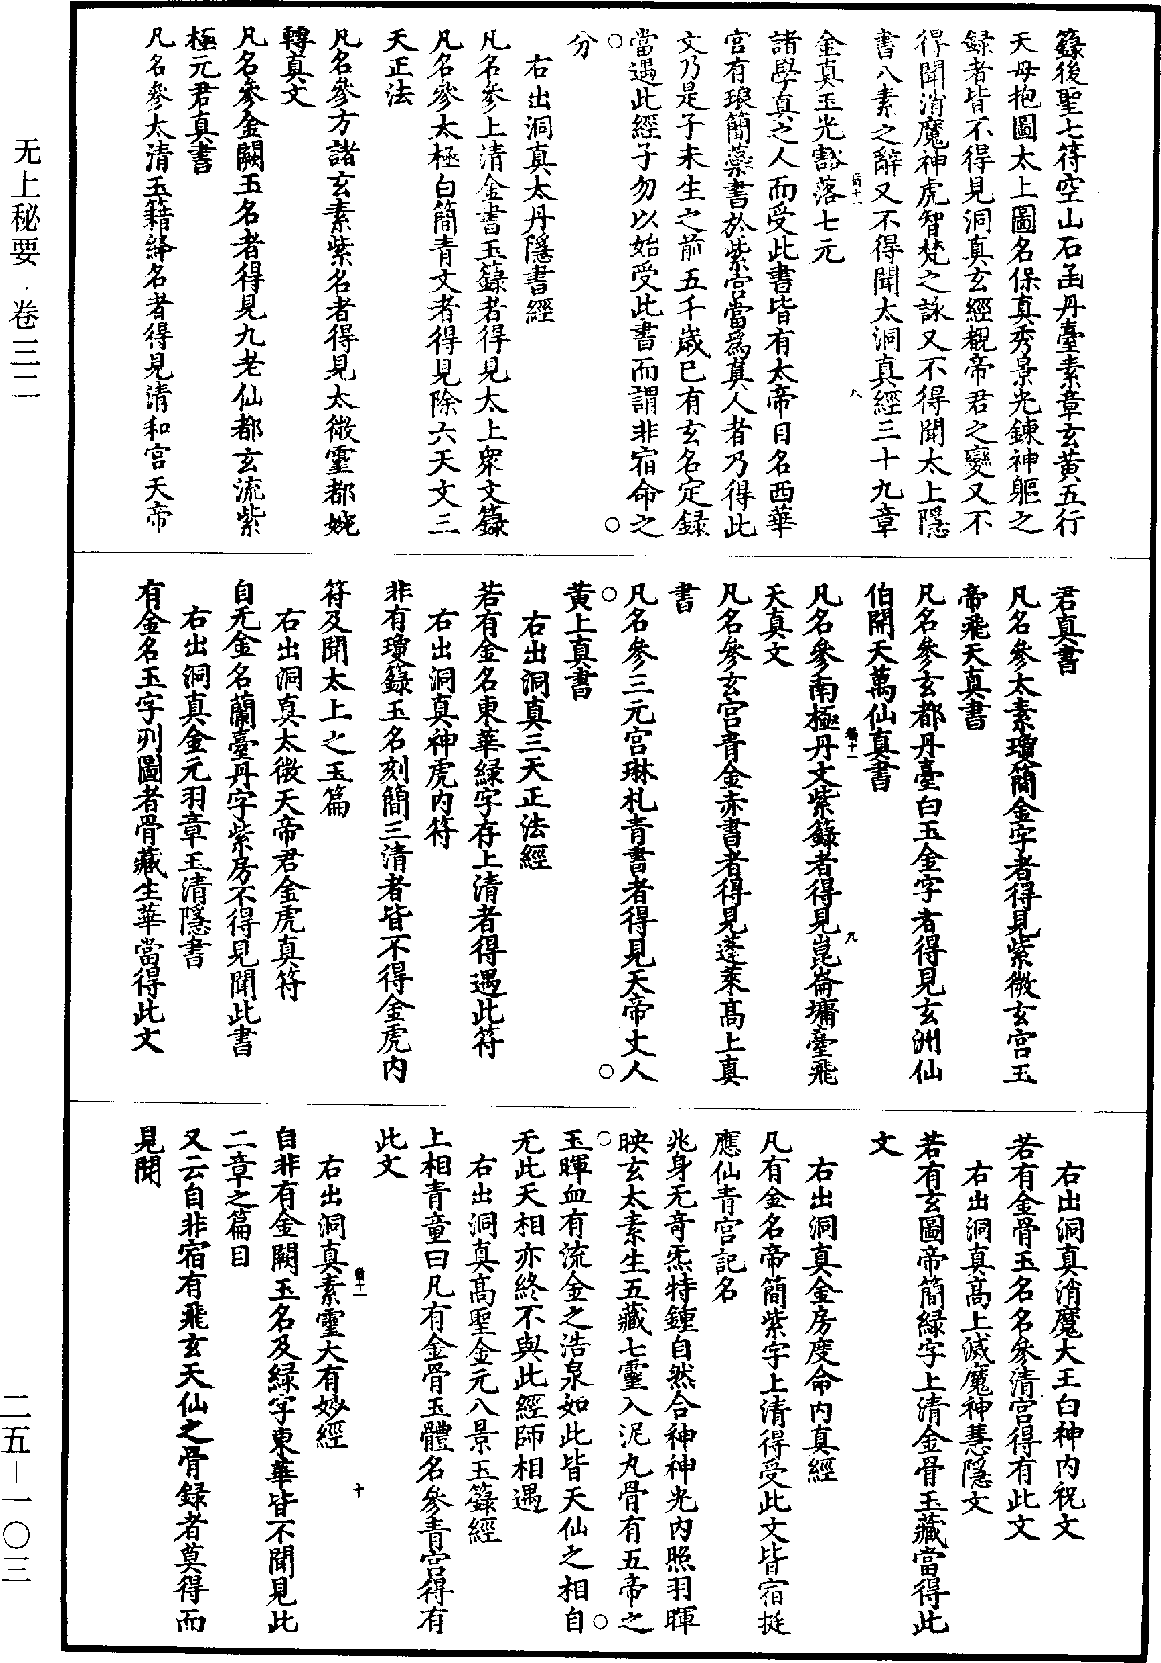 籙後聖七符空山石函丹臺素章玄黄五行
天母抱圖太上圖名保真秀景光鍊神軀之
録者皆不得見洞真玄經觀帝君之變又不
得聞消魔神虎智梵之詠又不得聞太上隱
書八素之辭又不得聞太洞真經三十九章
金真玉光豁落七元
諸學真之人而受此書皆有太帝日名西華
宮有琅簡蘂書於紫宮當爲真人者乃得此
文乃是子未生之前五千歲已有玄名定録
當遇此經子勿以始受此書而謂非宿命之
分
右出洞真太丹隱書經
凡名參上清金書玉籙者得見太上衆文籙
凡名參太極白簡青文者得見除六天文三
天正法
凡名參方諸玄素紫名者得見太微靈都婉
轉真文
凡名參金闕玉名者得見九老仙都玄流紫
極元君真書
凡名參太清玉籍絳名者得見清和宮天帝
君真書
凡名參太素瓊簡金字者得見紫微玄宮玉
帝飛天真書
凡名參玄都丹臺白玉金字者得見玄洲仙
伯開天萬仙真書
凡名參南極丹文紫籙者得見崑崙墉臺飛
天真文
凡名參玄宮青金赤書者得見蓬萊髙上真
書
凡名參三元宮琳札青書者得見天帝丈人
黄上真書
右出洞真三天正法經
若有金名東華緑字存上清者得遇此符
右出洞真神虎内符
非有瓊籙玉名刻簡三清者皆不得金虎内
符及聞太上之玉篇
右出洞真太微天帝君金虎真符
自无金名蘭臺丹字紫房不得見聞此書
右出洞真金元羽章玉清隱書
有金名玉字列圖者骨藏生華當得此文
右出洞真消魔大王白神内祝文
若有金骨玉名名參清宮得有此文
右出洞真髙上滅魔神慧隱文
若有玄圖帝簡緑字上清金骨玉藏當得此
文
右出洞真金房度命内真經
凡有金名帝簡紫字上清得受此文皆宿挺
應仙青宮記名
兆身无竒炁特鍾自然合神神光内照羽暉
映玄太素生五藏七靈入泥丸骨有五帝之
玉暉血有流金之浩泉如此皆天仙之相自
无此天相亦終不與此經師相遇
右出洞真髙聖金元八景玉籙經
上相青童曰凡有金骨玉體名參青宮得有
此文
右出洞真素靈大有妙經
自非有金闕玉名及緑字東華皆不聞見此
二章之篇目
又云自非宿有飛玄天仙之骨録者莫得而
見聞
无上秘要·卷三二
二五－一〇三